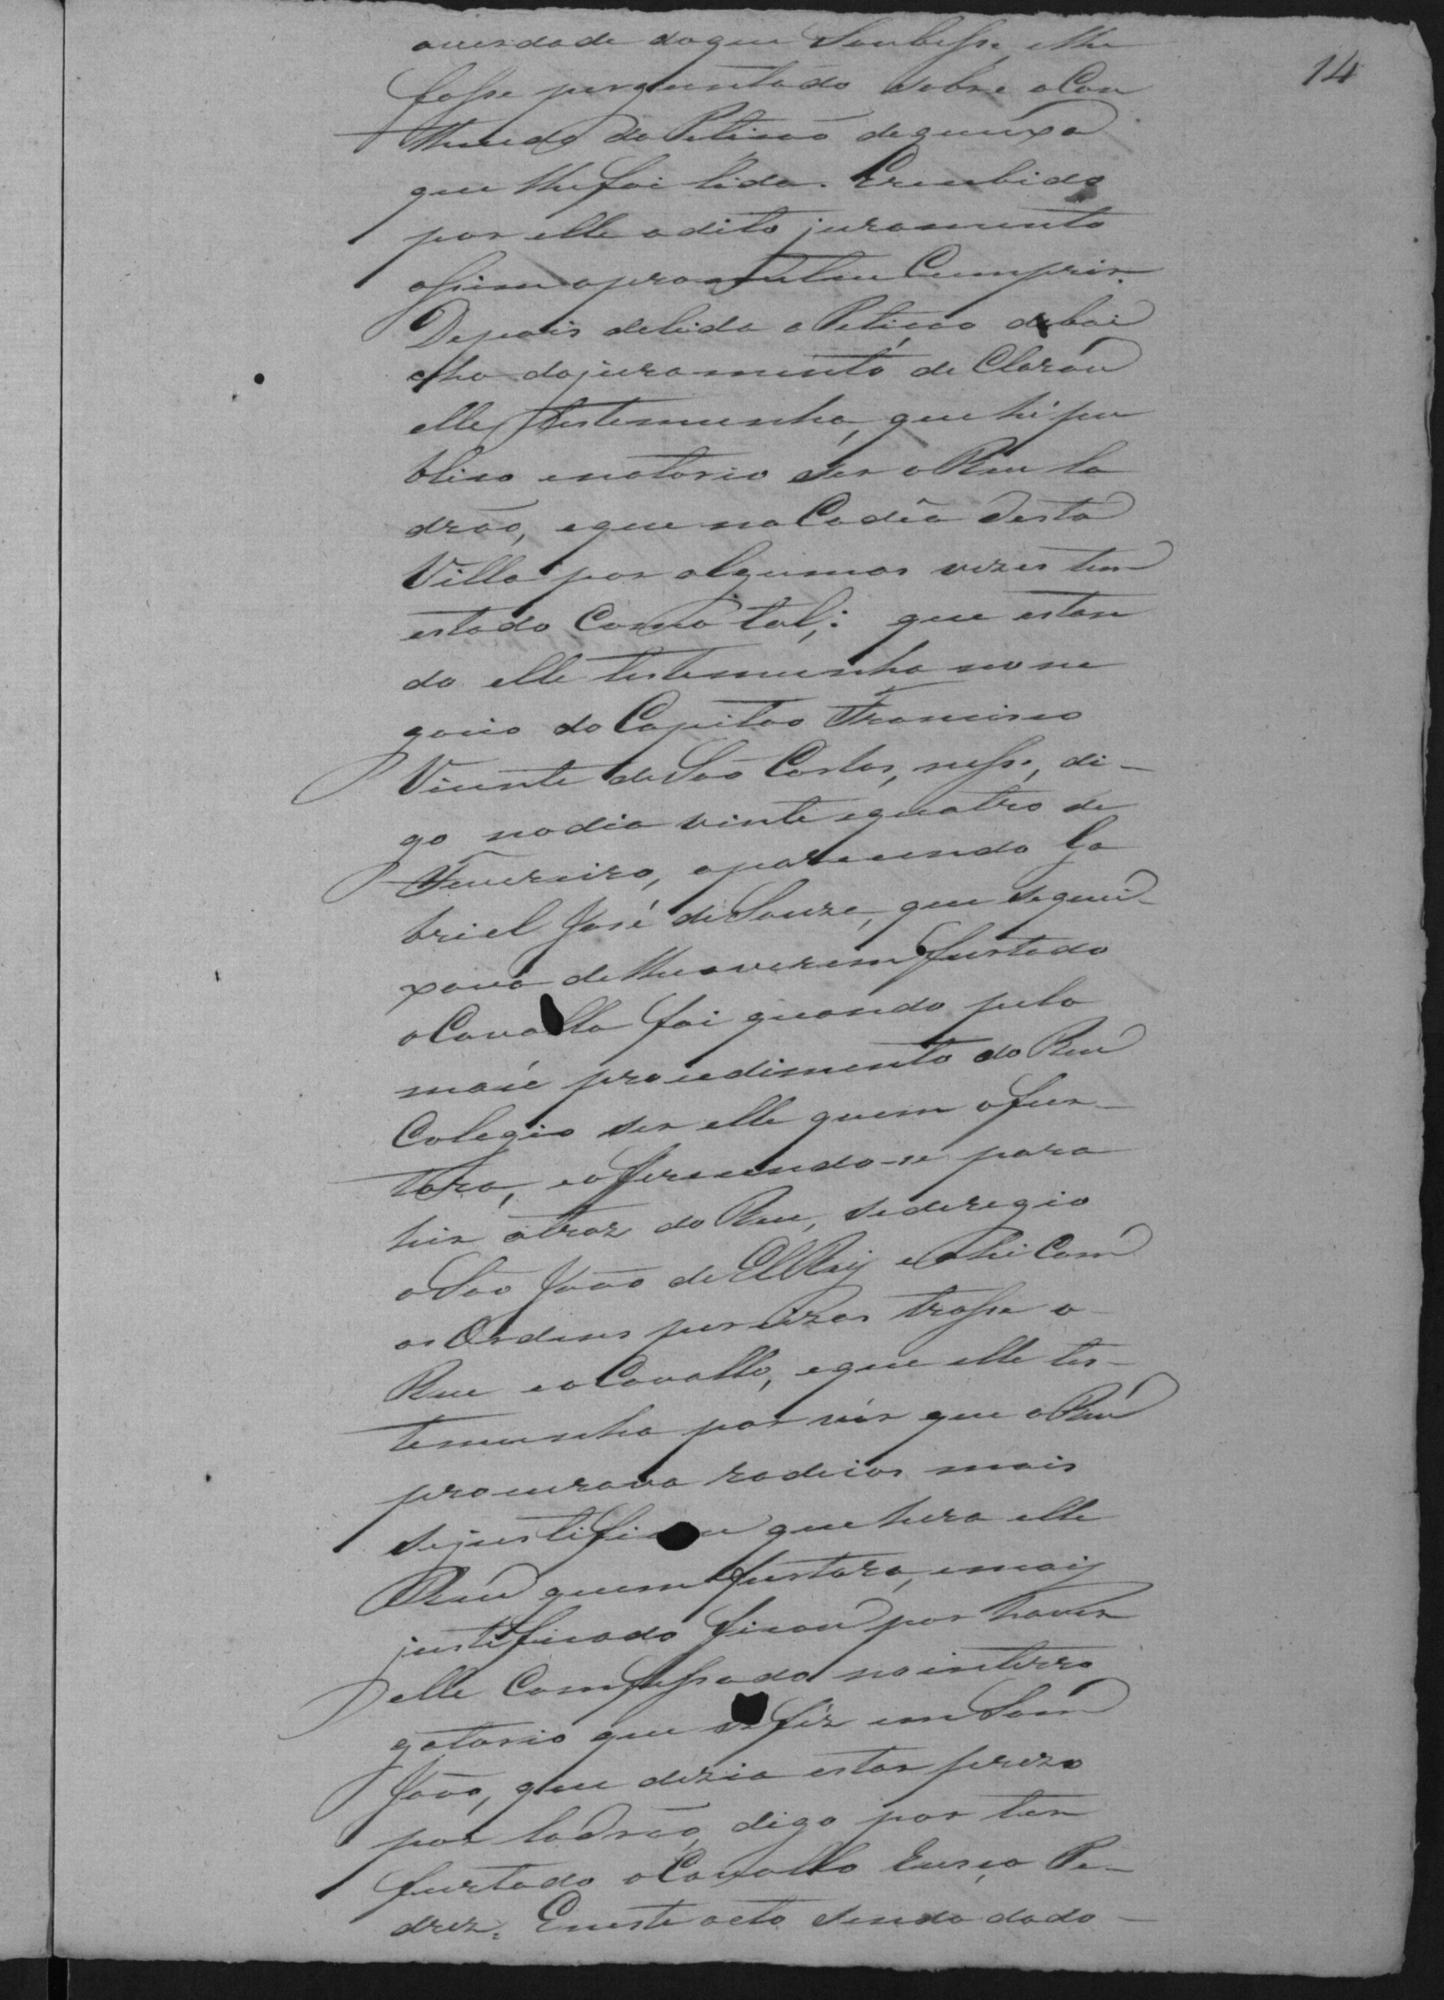 14
averdade doque Soubesse elhe
fosse perguntado sobre oCon
theudo da Petiçaõ dequeixa
que lhe foi lida. Erecebido
por elle odito juramento
assim oprometteu Cumprir.
Depois delida a Petiçao debai
cho dojuramento de Clarou
elle testemunha, que hé pu
blico enotorio ser oReu la
drão, eque na Cadêa desta
Villa por algumas vezes tem
estado Como tal; que estan
do elle testemunha no ne
gocio do Capitão Francisco
Vicente de São Carlos, nesse, di-
go nodia vinte equatro de
Fevereiro, aparecendo Ga
briel José de Souza, que sequei-
xava de lhe averem furtado
oCavallo foi quando pelo
maú procedimento do Reu
Colegio ser elle quem ofur-
tara, eoferecendo-se para
hir atraz do Reu, sederegio
a São João de El Rey e ahi Com
as Ordens percizas trosse o
Reu eoCavallo, eque elle tes-
temunha por vir que oReu
procurava rodeios mais
sejustificou que hera elle
Reu quem furtara, emais
justificado ficou por haver
elle Comfessado nointerro
gatorio que se fez em Sam
João, que dizia estar prezo
por ladrão, digo por ter
furtado oCavallo Ruço Pe-
drez. Eneste acto sendo dado